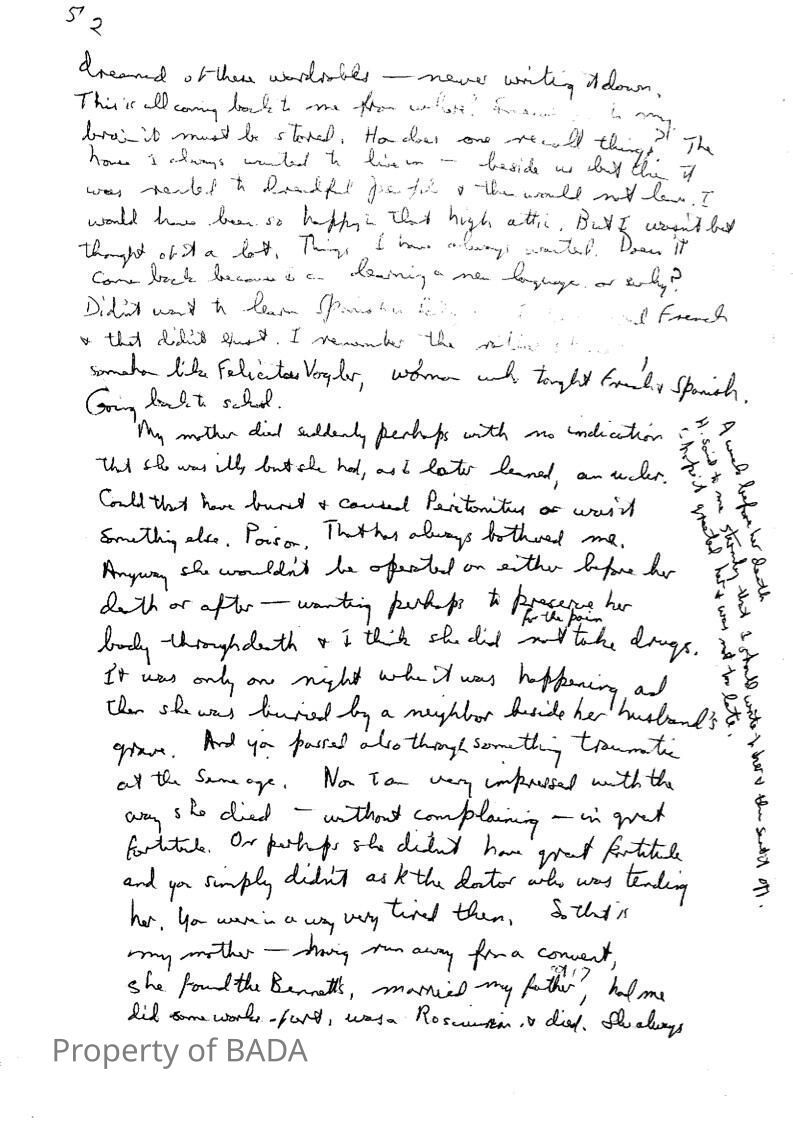 52
dreamed of these wardrobes — never writing it down.
This is all coming back to me from where? to my
brain it must be stored. How does one recall things? The
house I always wanted to live in — beside us but then it
was rented to dreadful people & they would not leave. I
would have been so happy in that high attic. But I wasn't but
thought of it a lot. Things I have always wanted. Does it
come back because I am learning a new language or why?
Didn't want to learn Spanish French
& that didn't exist. I remember the
somehow like Felicitas Vogler, woman who taught French & Spanish.
Going back to school.
My mother died suddenly perhaps with no indication
that she was ill, but she had, as I later learned, an ulcer.
Could that have burst & caused Peritonitus or was it
something else. Poison. That has always bothered me.
Anyway she wouldn't be operated on either before her
death or after — wanting perhaps to preserve her
for the pain
body through death & I think she did not take drugs.
It was only one night when it was happening and
then she was buried by a neighbor beside her husband's
grave. And you passed also through something traumatic
at the same age. Now I am very impressed with the
way she died — without complaining — in great
fortitude. Or perhaps she didn't have great fortitude
and you simply didn't ask the doctor who was tending
her. You were in a way very tired then. So that is
my mother — having run away from a convent,
at 17
she found the Bennetts, married my father, had me
did some works -, was a Rosicrucian & died. She always
A week before her death
H. said to me strongly that I should write to her & then sent it off.
I hope it greeted her & was not too late.
Property of BADA